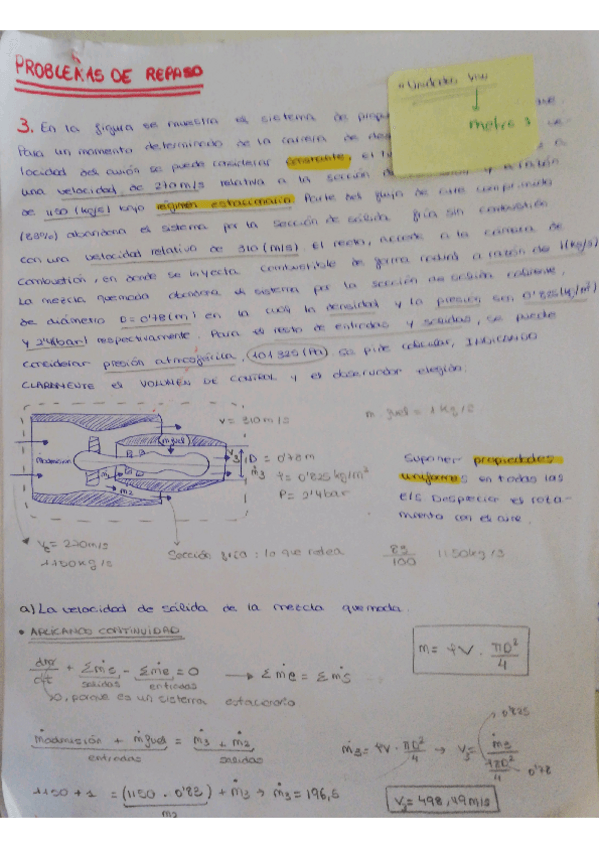 PROBLEMAS DE REPASO
* Unidades
metro 3
3. En la figura se muestra el sistema de
Para un momento determinado de la carrera de
locidad del avión se puede considerar constante, el
una velocidad de 270 m/s relativa a la sección
de 1150 (kg/s) bajo régimen estacionario. Parte del flujo de aire comprimido
(83%) abandona el sistema por la sección de salida fría sin combustión
con una velocidad relativa de 310 (m/s). El resto, accede a la cámara de
combustión, en donde se inyecta combustible de forma radial a razón de 1(kg/s)
La mezcla quemada abandona el sistema por la sección de salida caliente,
de diámetro D=0'78(m) en la cual la densidad y la presión son 0'825(kg/m³)
y 2'4(bar) respectivamente. Para el resto de entradas y salidas, se puede
considerar presión atmosférica, (101325(Pa). Se pide calcular, INDICANDO
CLARAMENTE el VOLUMEN DE CONTROL y el observador elegido.
V = 310 m/s
ṁ fuel = 1 kg/s
admisión
ṁ fuel
ṁ2
V3
ṁ3
D = 0'78m
φ = 0'825 kg/m³
P = 2'4 bar
Suponer propiedades
uniformes en todas las
e/s Despreciar el roza-
miento con el aire.
= 270 m/s
1150 kg/s
Sección fría: lo que rodea
83/100 1150 kg/s
a) La velocidad de salida de la mezcla quemada.
• APLICANDO CONTINUIDAD
ṁ = φV · πD²/4
+ Σṁs - Σṁe = 0 → Σṁe = Σṁs
salidas entradas
0, porque es un sistema estacionario
ṁadmisión + ṁfuel = ṁ3 + ṁ2
entradas salidas
ṁ3 = φV · πD²/4 → V3 = ṁ3 / (φπD²/4)
0'825
0'78
1150 + 1 = (1150 · 0'83) + ṁ3 → ṁ3 = 196,5
ṁ2
V3 = 498,49 m/s